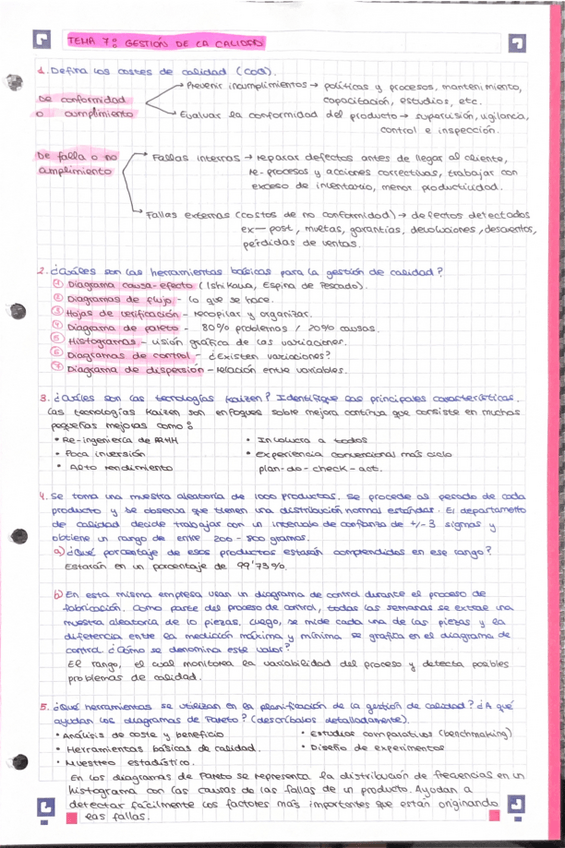 TEMA 7: GESTIÓN DE LA CALIDAD
1. Defina los costes de calidad (COQ).
De conformidad o cumplimiento
Prevenir incumplimientos → políticas y procesos, mantenimiento,
capacitación, estudios, etc.
Evaluar la conformidad del producto → supervisión, vigilancia,
control e inspección.
De falla o no cumplimiento
Fallas internas → reparar defectos antes de llegar al cliente,
re-procesos y acciones correctivas, trabajar con
exceso de inventario, menor productividad.
Fallas externas (costos de no conformidad) → defectos detectados
ex-post, multas, garantías, devoluciones, descuentos,
pérdidas de ventas.
2. ¿Cuáles son las herramientas básicas para la gestión de calidad?
① Diagrama causa-efecto (Ishikawa, Espina de Pescado).
② Diagramas de flujo - lo que se hace.
③ Hojas de verificación - recopilar y organizar.
④ Diagrama de pareto - 80% problemas / 20% causas.
⑤ Histogramas - visión gráfica de las variaciones.
⑥ Diagramas de control - ¿Existen variaciones?
⑦ Diagrama de dispersión - relación entre variables.
3. ¿Cuáles son las tecnologías Kaizen? Identifique las principales características.
Las tecnologías Kaizen son enfoques sobre mejora continua que consiste en muchas
pequeñas mejoras como:
• Re-ingeniería de RRHH
• Poca inversión
• Alto rendimiento
• Involucra a todos
• Experiencia convencional más ciclo
plan-do-check-act.
4. Se toma una muestra aleatoria de 1000 productos. Se procede al pesado de cada
producto y se observa que tienen una distribución normal estándar. El departamento
de calidad decide trabajar con un intervalo de confianza de +/- 3 sigmas y
obtiene un rango de entre 200 - 800 gramos.
a) ¿Qué porcentaje de esos productos estarán comprendidos en ese rango?
Estarán en un porcentaje de 99'73%.
b) En esta misma empresa usan un diagrama de control durante el proceso de
fabricación. Como parte del proceso de control, todas las semanas se extrae una
muestra aleatoria de 10 piezas. Luego, se mide cada una de las piezas y la
diferencia entre la medición máxima y mínima se grafica en el diagrama de
control. ¿Cómo se denomina este valor?
El rango, el cual monitorea la variabilidad del proceso y detecta posibles
problemas de calidad.
5. ¿Qué herramientas se utilizan en la planificación de la gestión de calidad? ¿A qué
ayudan los diagramas de Pareto? (descríbalos detalladamente).
• Análisis de coste y beneficio
• Herramientas básicas de calidad.
• Muestreo estadístico.
• Estudios comparativos (benchmaking)
• Diseño de experimentos
En los diagramas de Pareto se representa la distribución de frecuencias en un
histograma con las causas de las fallas de un producto. Ayudan a
detectar fácilmente los factores más importantes que están originando
las fallas.